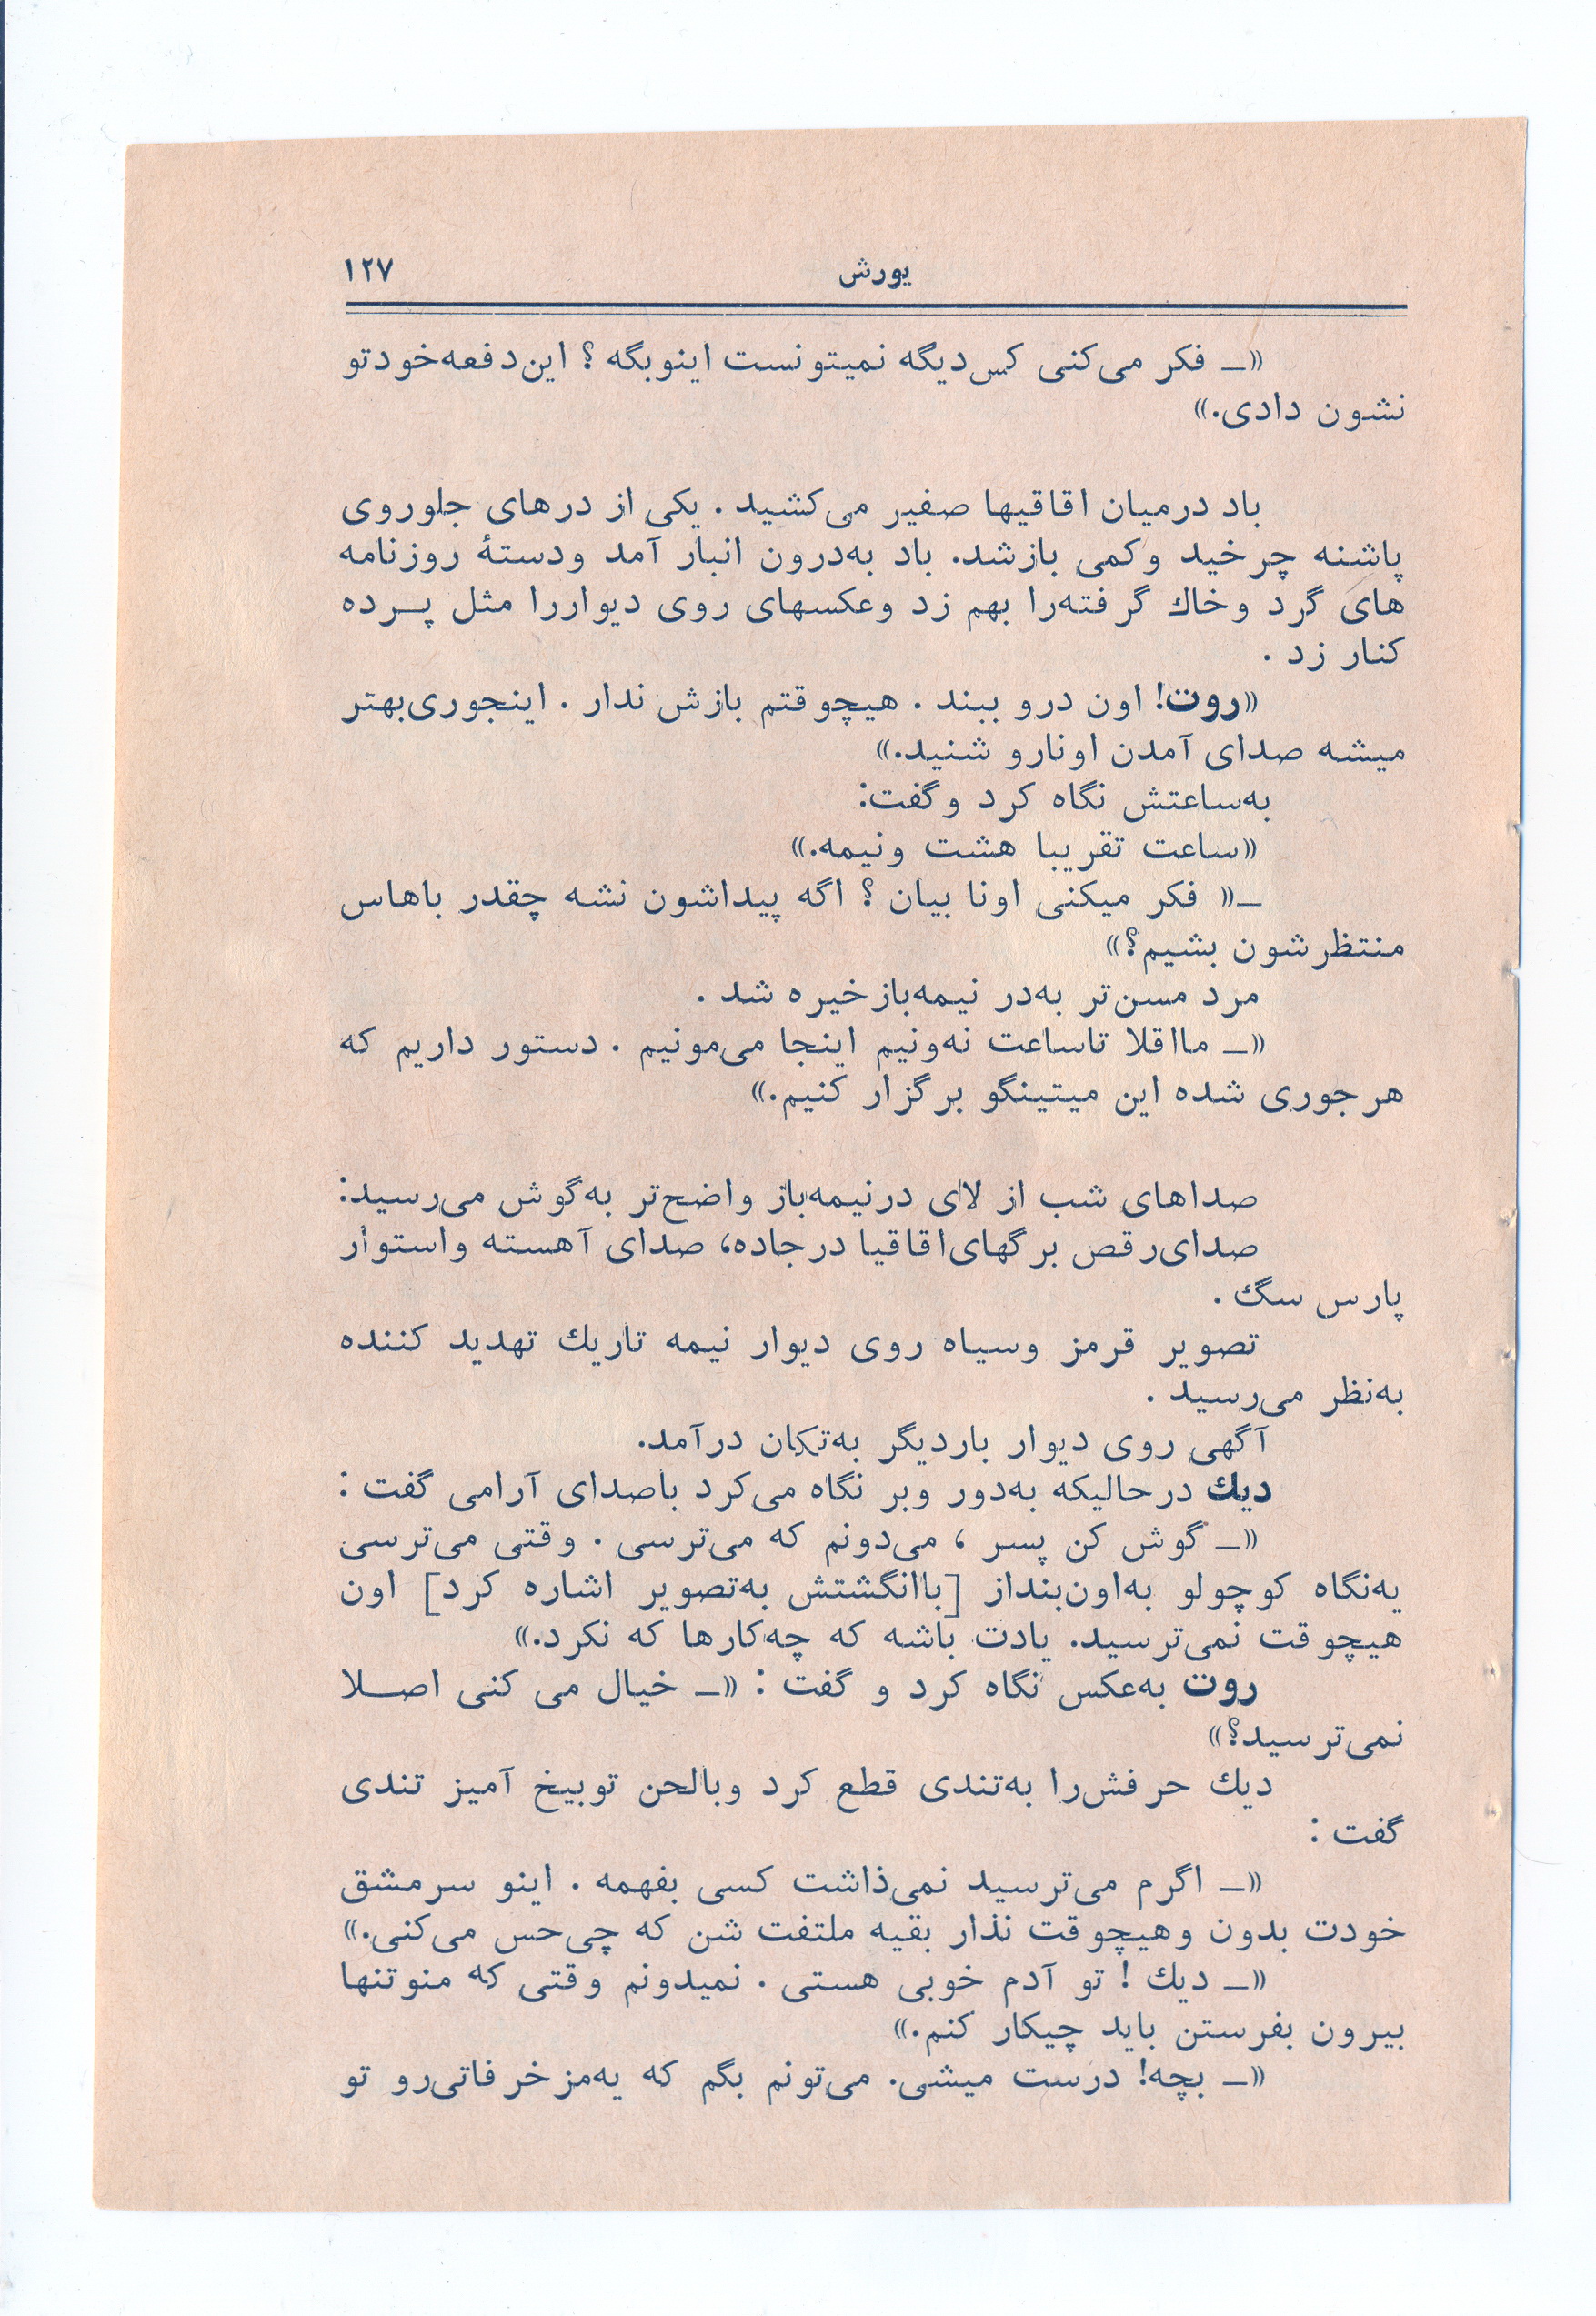 یورش
۱۲۷
«ـ فکر می‌کنی کس‌دیگه نمیتونست اینوبگه ؟ این‌دفعه‌خودتو
نشون دادی.»
باد درمیان اقاقیها صفیر می‌کشید . یکی از درهای جلوروی
پاشنه چرخید وکمی بازشد. باد به‌درون انبار آمد ودستۀ روزنامه
های گرد وخاك گرفته‌را بهم زد وعکسهای روی دیواررا مثل پـرده
کنار زد .
«روت! اون درو ببند . هیچوقتم بازش ندار . اینجوری‌بهتر
میشه صدای آمدن اونارو شنید.»
به‌ساعتش نگاه کرد وگفت:
«ساعت تقریبا هشت ونیمه.»
ـ« فکر میکنی اونا بیان ؟ اگه پیداشون نشه چقدر باهاس
منتظرشون بشیم؟»
مرد مسن‌تر به‌در نیمه‌بازخیره شد .
«ـ مااقلا تاساعت نه‌ونیم اینجا می‌مونیم . دستور داریم که
هرجوری شده این میتینگو برگزار کنیم.»
صداهای شب از لای درنیمه‌باز واضح‌تر به‌گوش می‌رسید:
صدای‌رقص برگهای‌اقاقیا درجاده، صدای آهسته واستوار
پارس سگ .
تصویر قرمز وسیاه روی دیوار نیمه تاریك تهدید کننده
به‌نظر می‌رسید .
آگهی روی دیوار باردیگر به‌تکان درآمد.
دیك درحالیکه به‌دور وبر نگاه می‌کرد باصدای آرامی گفت :
«ـ گوش کن پسر ، می‌دونم که می‌ترسی . وقتی می‌ترسی
یه‌نگاه کوچولو به‌اون‌بنداز [باانگشتش به‌تصویر اشاره کرد] اون
هیچوقت نمی‌ترسید. یادت باشه که چه‌کارها که نکرد.»
روت به‌عکس نگاه کرد و گفت : «ـ خیال می کنی اصـلا
نمی‌ترسید؟»
دیك حرفش‌را به‌تندی قطع کرد وبالحن توبیخ آمیز تندی
گفت :
«ـ اگرم می‌ترسید نمی‌ذاشت کسی بفهمه . اینو سرمشق
خودت بدون وهیچوقت نذار بقیه ملتفت شن که چی‌حس می‌کنی.»
«ـ دیك ! تو آدم خوبی هستی . نمیدونم وقتی که منوتنها
بیرون بفرستن باید چیکار کنم.»
«ـ بچه! درست میشی. می‌تونم بگم که یه‌مزخرفاتی‌رو تو